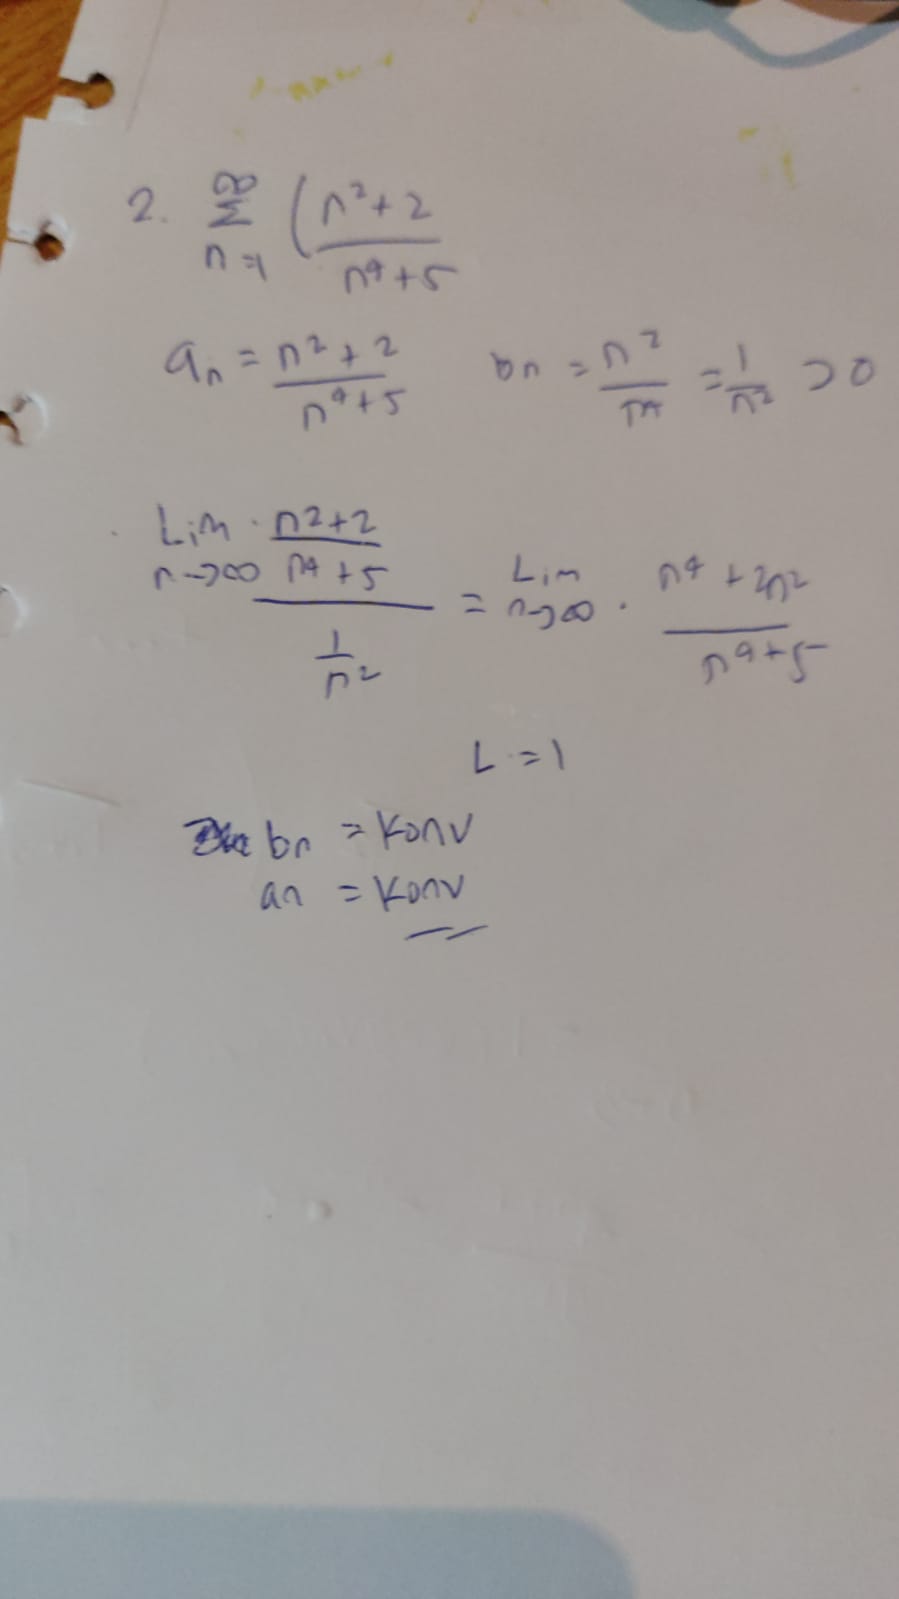 2. ∞ Σ n=1 ( n²+2 / n⁴+5
an = n²+2 / n⁴+5   bn = n² / n⁴ = 1/n² > 0
Lim n→∞ (n²+2 / n⁴+5) / (1/n²) = Lim n→∞ . n⁴+2n² / n⁴+5
L=1
bn = Konv
an = Konv